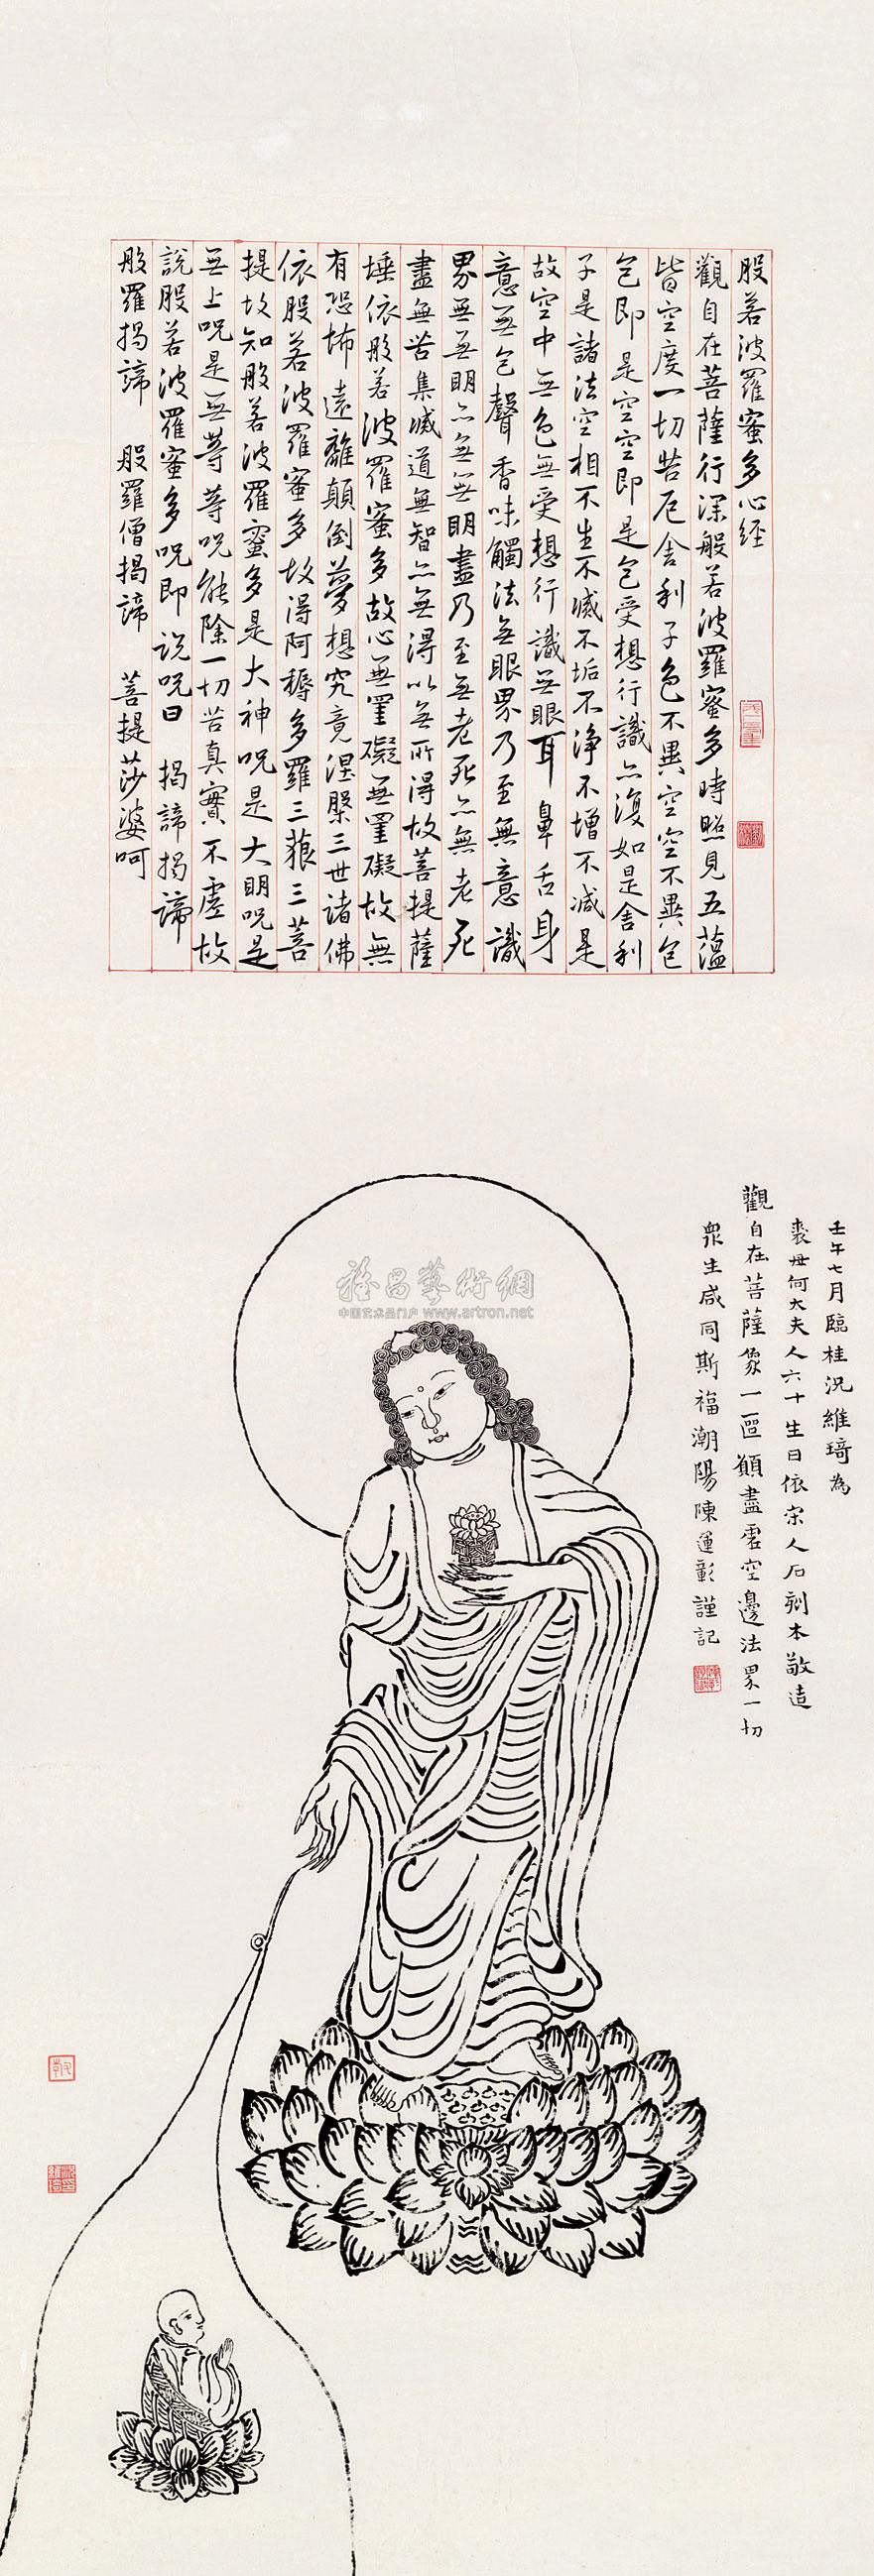 般若波羅蜜多心經
觀自在菩薩行深般若波羅蜜多時照見五蘊
皆空度一切苦厄舍利子色不異空空不異色
色即是空空即是色受想行識亦復如是舍利
子是諸法空相不生不滅不垢不淨不增不減是
故空中無色無受想行識無眼耳鼻舌身
意無色聲香味觸法無眼界乃至無意識
界無無明亦無無明盡乃至無老死亦無老死
盡無苦集滅道無智亦無得以無所得故菩提薩
埵依般若波羅蜜多故心無罣礙無罣礙故無
有恐怖遠離顛倒夢想究竟涅槃三世諸佛
依般若波羅蜜多故得阿耨多羅三藐三菩
提故知般若波羅蜜多是大神呪是大明呪是
無上呪是無等等呪能除一切苦真實不虛故
說般若波羅蜜多呪即說呪曰 揭諦揭諦
般羅揭諦 般羅僧揭諦 菩提莎婆呵
壬午七月臨桂況維琦為
裘母何大夫人六十生日依宋人石刻本敬造
觀自在菩薩象一區願盡虛空邊法界一切
眾生咸同斯福潮陽陳運彰謹記
雅昌藝術網
中国艺术品门户 www.artron.net